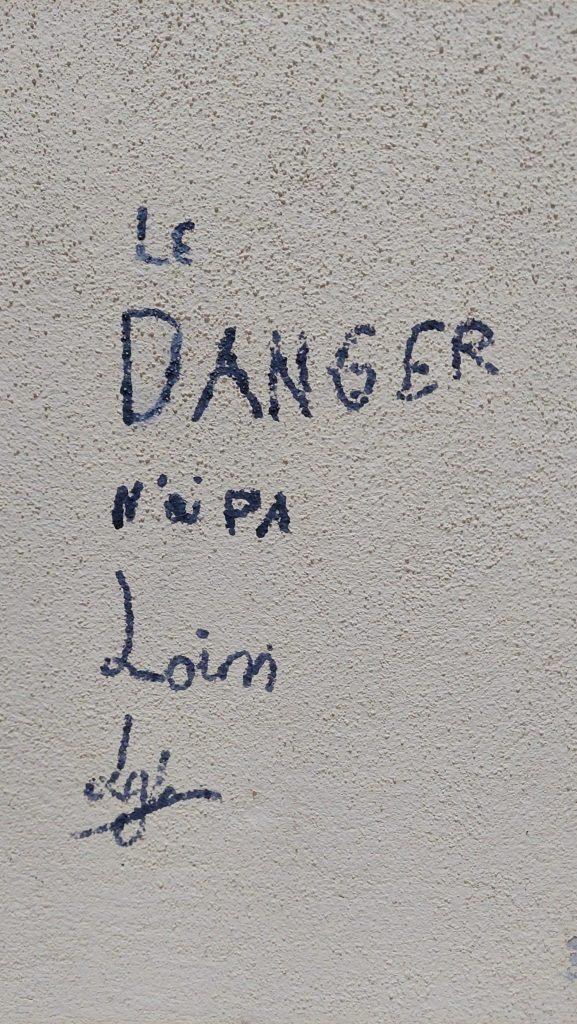 Le
DANGER
N'ai PA
Loin